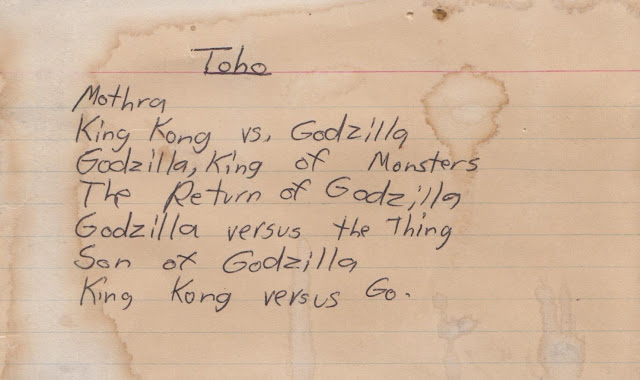 Toho
Mothra
King Kong vs. Godzilla
Godzilla, King of Monsters
The Return of Godzilla
Godzilla versus the Thing
Son of Godzilla
King Kong versus Go.